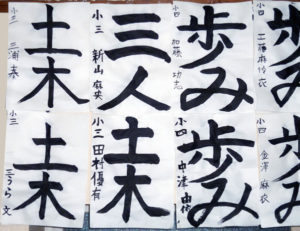 土木
小三 三浦 奏
三人
小三 新山 麻央
歩み
小四 加藤 功志
歩み
小四 工藤麻怜衣
土木
小三 三うら 文
土木
小三 田村優有
歩み
小四 中津 由依
歩み
小四 金澤 麻衣